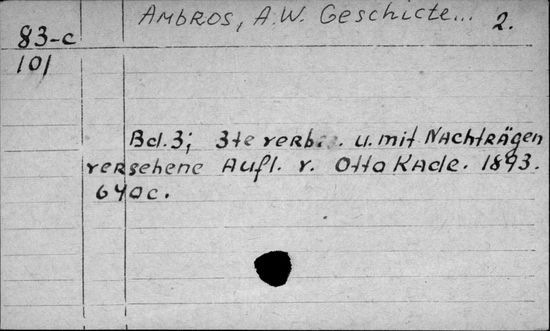 AMBROS, A.W. Geschicte... 2.
83-c
101
Bd.3; 3te verb. u. mit Nachträgen
versehene Aufl. v. Otto Kade. 1893.
640 c.